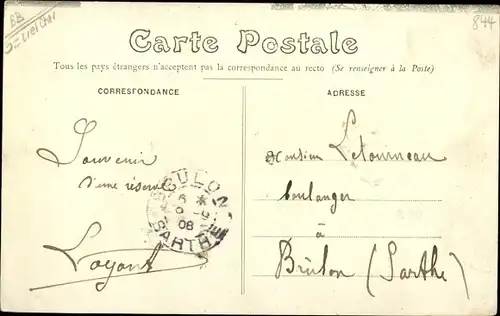 844
Carte Postale
Tous les pays étrangers n'acceptent pas la correspondance au recto (Se renseigner à la Poste)
CORRESPONDANCE
ADRESSE
Souvenir
d'une réserve
Loyant
Monsieur Letourneau
boulanger
à
Brûlon (Sarthe)
08
SARTHE